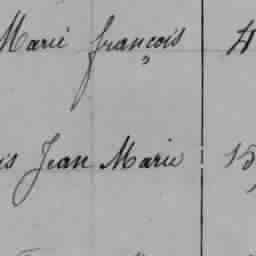 Marie françois 4
is Jean Marie 15